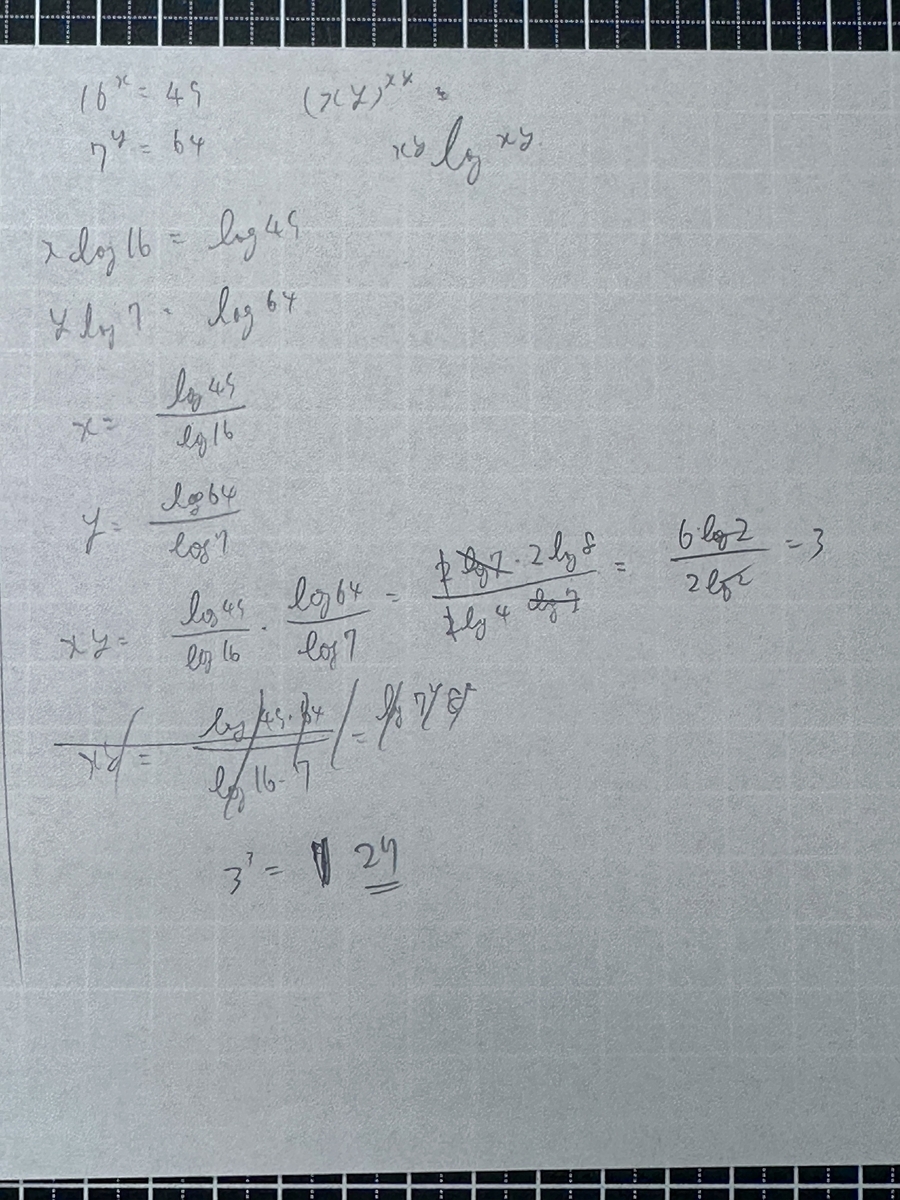 16^x = 49 (xy)^{xy} =
7^y = 64 xy log xy.
x log 16 = log 49
y log 7 = log 64
x = \frac{log 49}{log 16}
y = \frac{log 64}{log 7}
xy = \frac{log 49}{log 16} · \frac{log 64}{log 7} = \frac{2 log 7 · 2 log 8}{2 log 4 log 7} = \frac{6 · log 2}{2 log 2} = 3
xy = \frac{log 49 · 64}{log 16 · 7} = log 7
3^3 = 27